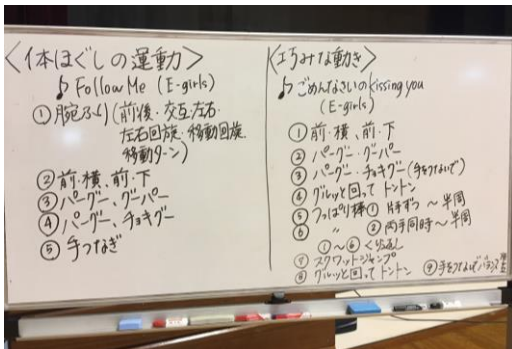 ＜体ほぐしの運動＞
♪ Follow Me (E-girls)
①腕ふり(前後・交互左右・
左右回旋・移動回旋
移動ターン)
②前・横、前・下
③パーグー、グーパー
④パーグー、チョキグー
⑤手つなぎ
＜巧みな動き＞
♪ ごめんなさいのkissing you
(E-girls)
①前・横、前・下
②パーグー・グーパー
③パーグー・チョキグー(手をつないで)
④グルッと回って トントン
⑤つっぱり棒①片手ずつ～半周
⑥ 〃 ②両手同時～半周
①～⑥くり返し
⑦スクワットジャンプ
⑧グルッと回って トントン ⑨手をつないでバランス